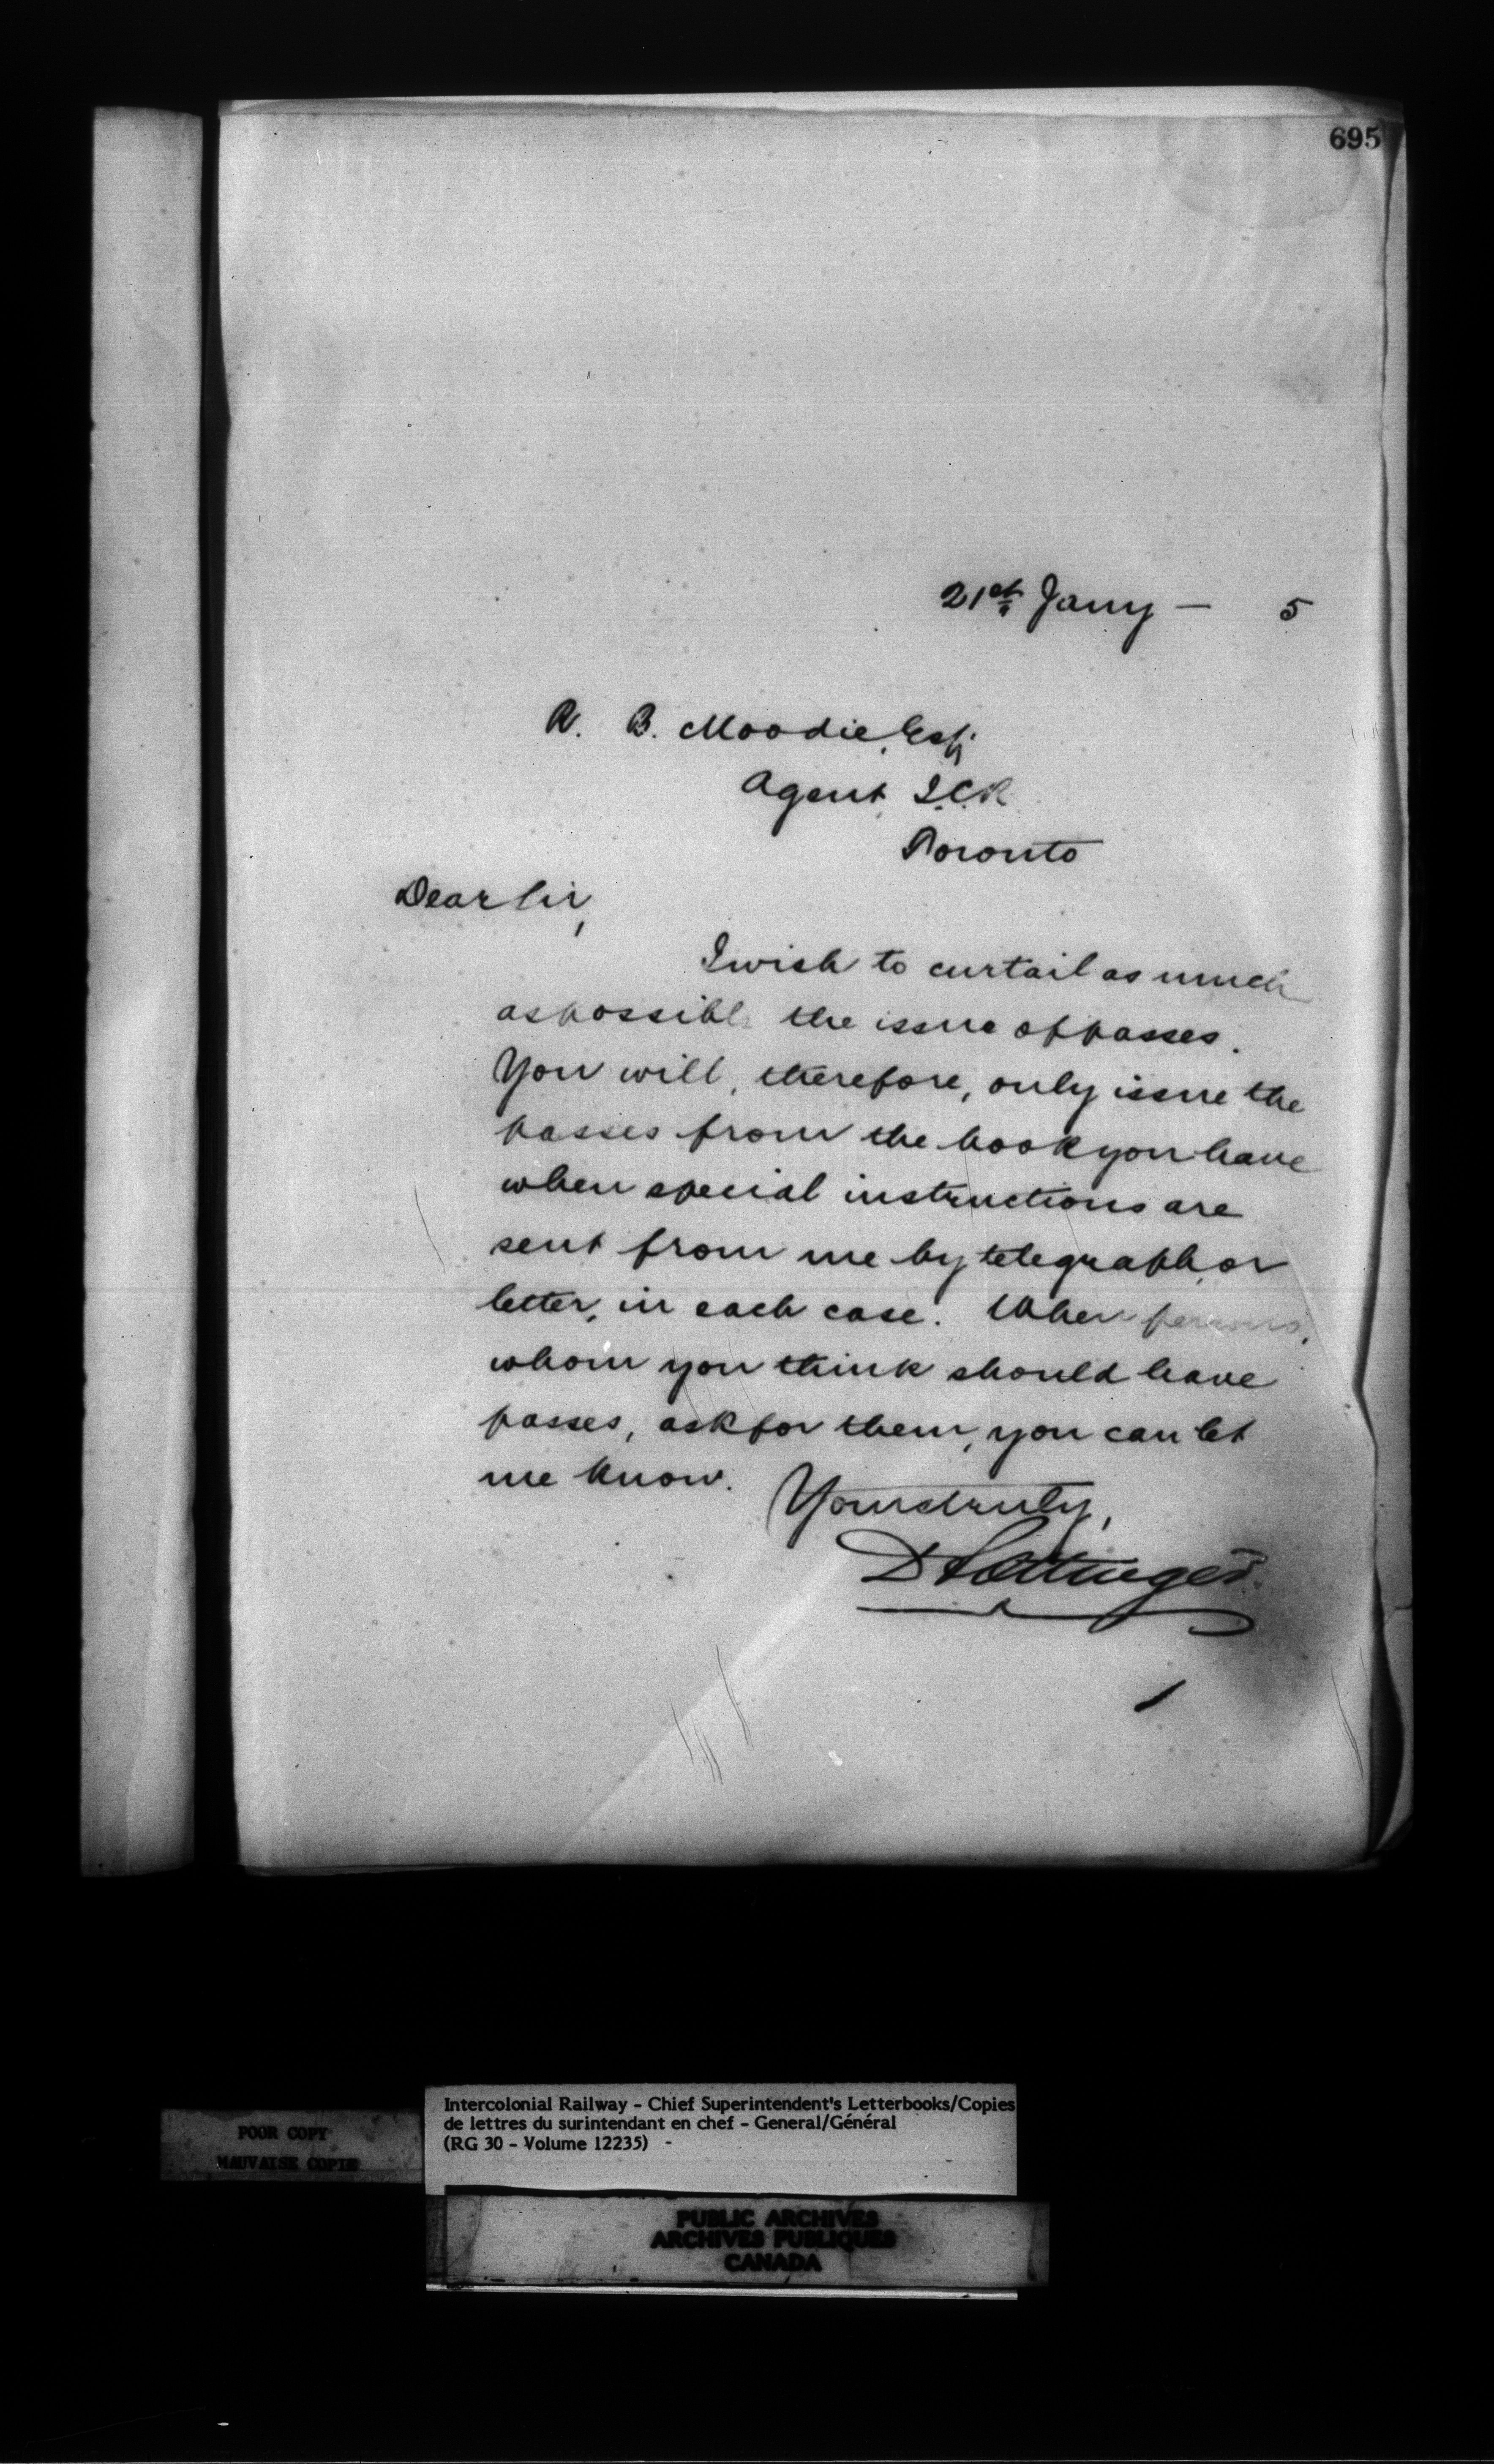 695
21st Jany — 5
R. B. Moodie, Esq.
Agent, I.C.R
Toronto
Dear Sir,
I wish to curtail as much
as possible the issue of passes.
You will, therefore, only issue the
passes from the book you have
when special instructions are
sent from me by telegraph, or
letter, in each case. When persons,
whom you think should have
passes, ask for them, you can let
me know.
Yours truly,
D Pottinger
POOR COPY
MAUVAISE COPIE
Intercolonial Railway - Chief Superintendent's Letterbooks/Copies
de lettres du surintendant en chef - General/Général
(RG 30 - Volume 12235) -
PUBLIC ARCHIVES
ARCHIVES PUBLIQUES
CANADA